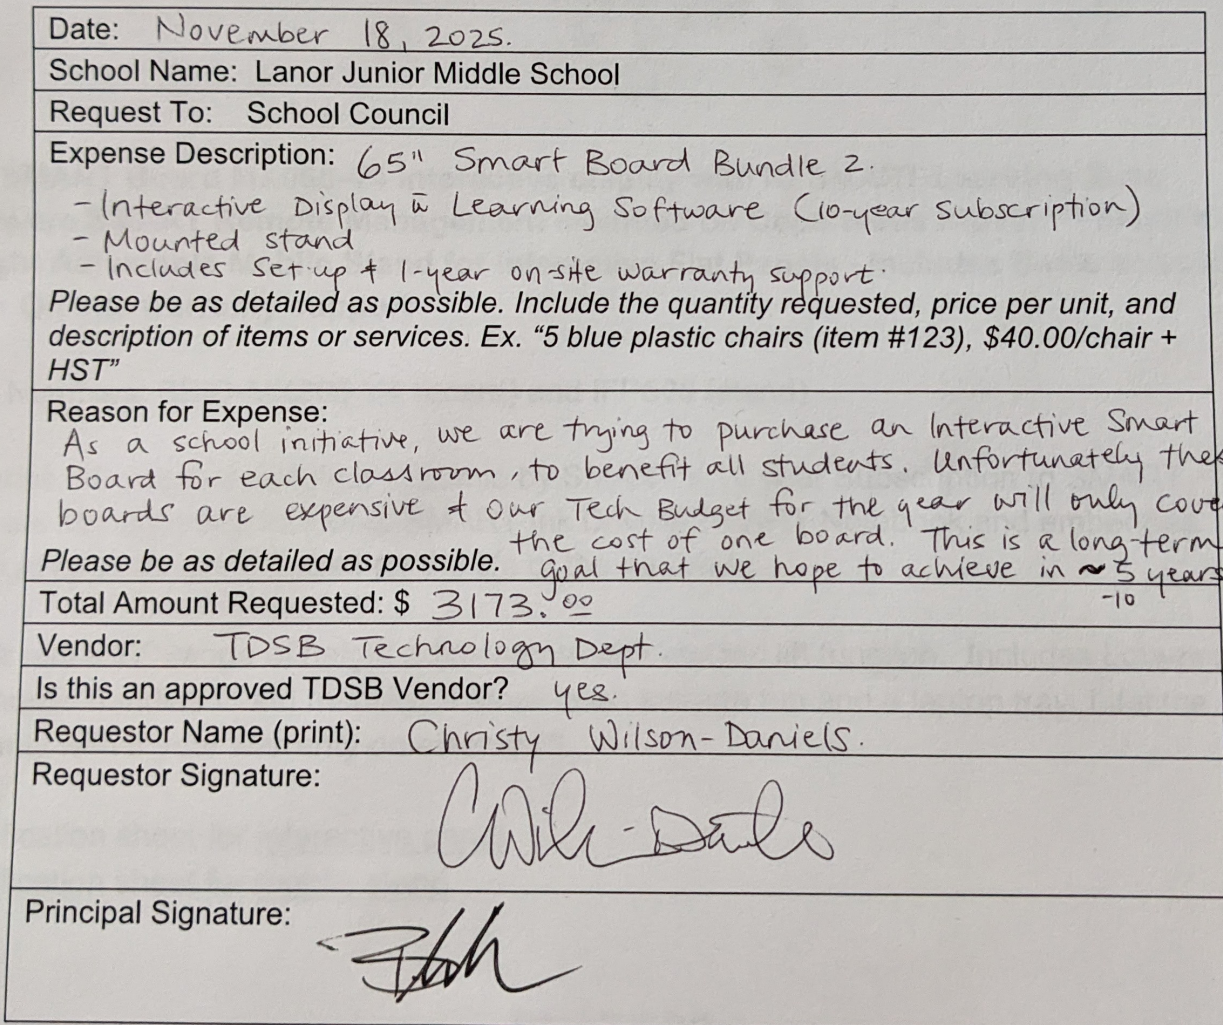 Date: November 18, 2025.
School Name: Lanor Junior Middle School
Request To: School Council
Expense Description: 65" Smart Board Bundle 2.
- Interactive Display w Learning Software (10-year subscription)
- Mounted stand
- Includes set-up & 1-year on-site warranty support.
Please be as detailed as possible. Include the quantity requested, price per unit, and
description of items or services. Ex. “5 blue plastic chairs (item #123), $40.00/chair +
HST”
Reason for Expense:
As a school initiative, we are trying to purchase an Interactive Smart
Board for each classroom to benefit all students. Unfortunately thes
boards are expensive & our Tech Budget for the year will only cove
the cost of one board. This is a long-term
Please be as detailed as possible. goal that we hope to achieve in ~5 years
-10
Total Amount Requested: $ 3173.00
Vendor: TDSB Technology Dept
Is this an approved TDSB Vendor? yes.
Requestor Name (print): Christy Wilson-Daniels.
Requestor Signature:
Principal Signature: